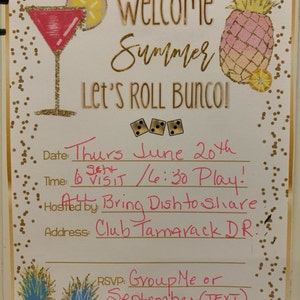 Welcome
Summer
LET'S ROLL BUNCO!
Date: Thurs June 20th
Time: 6 VISIT / 6:30 Play!
Hosted by: All Bring Dish to share
Address: Club Tamarack DR.
RSVP: Group Me or
September (TEXT)